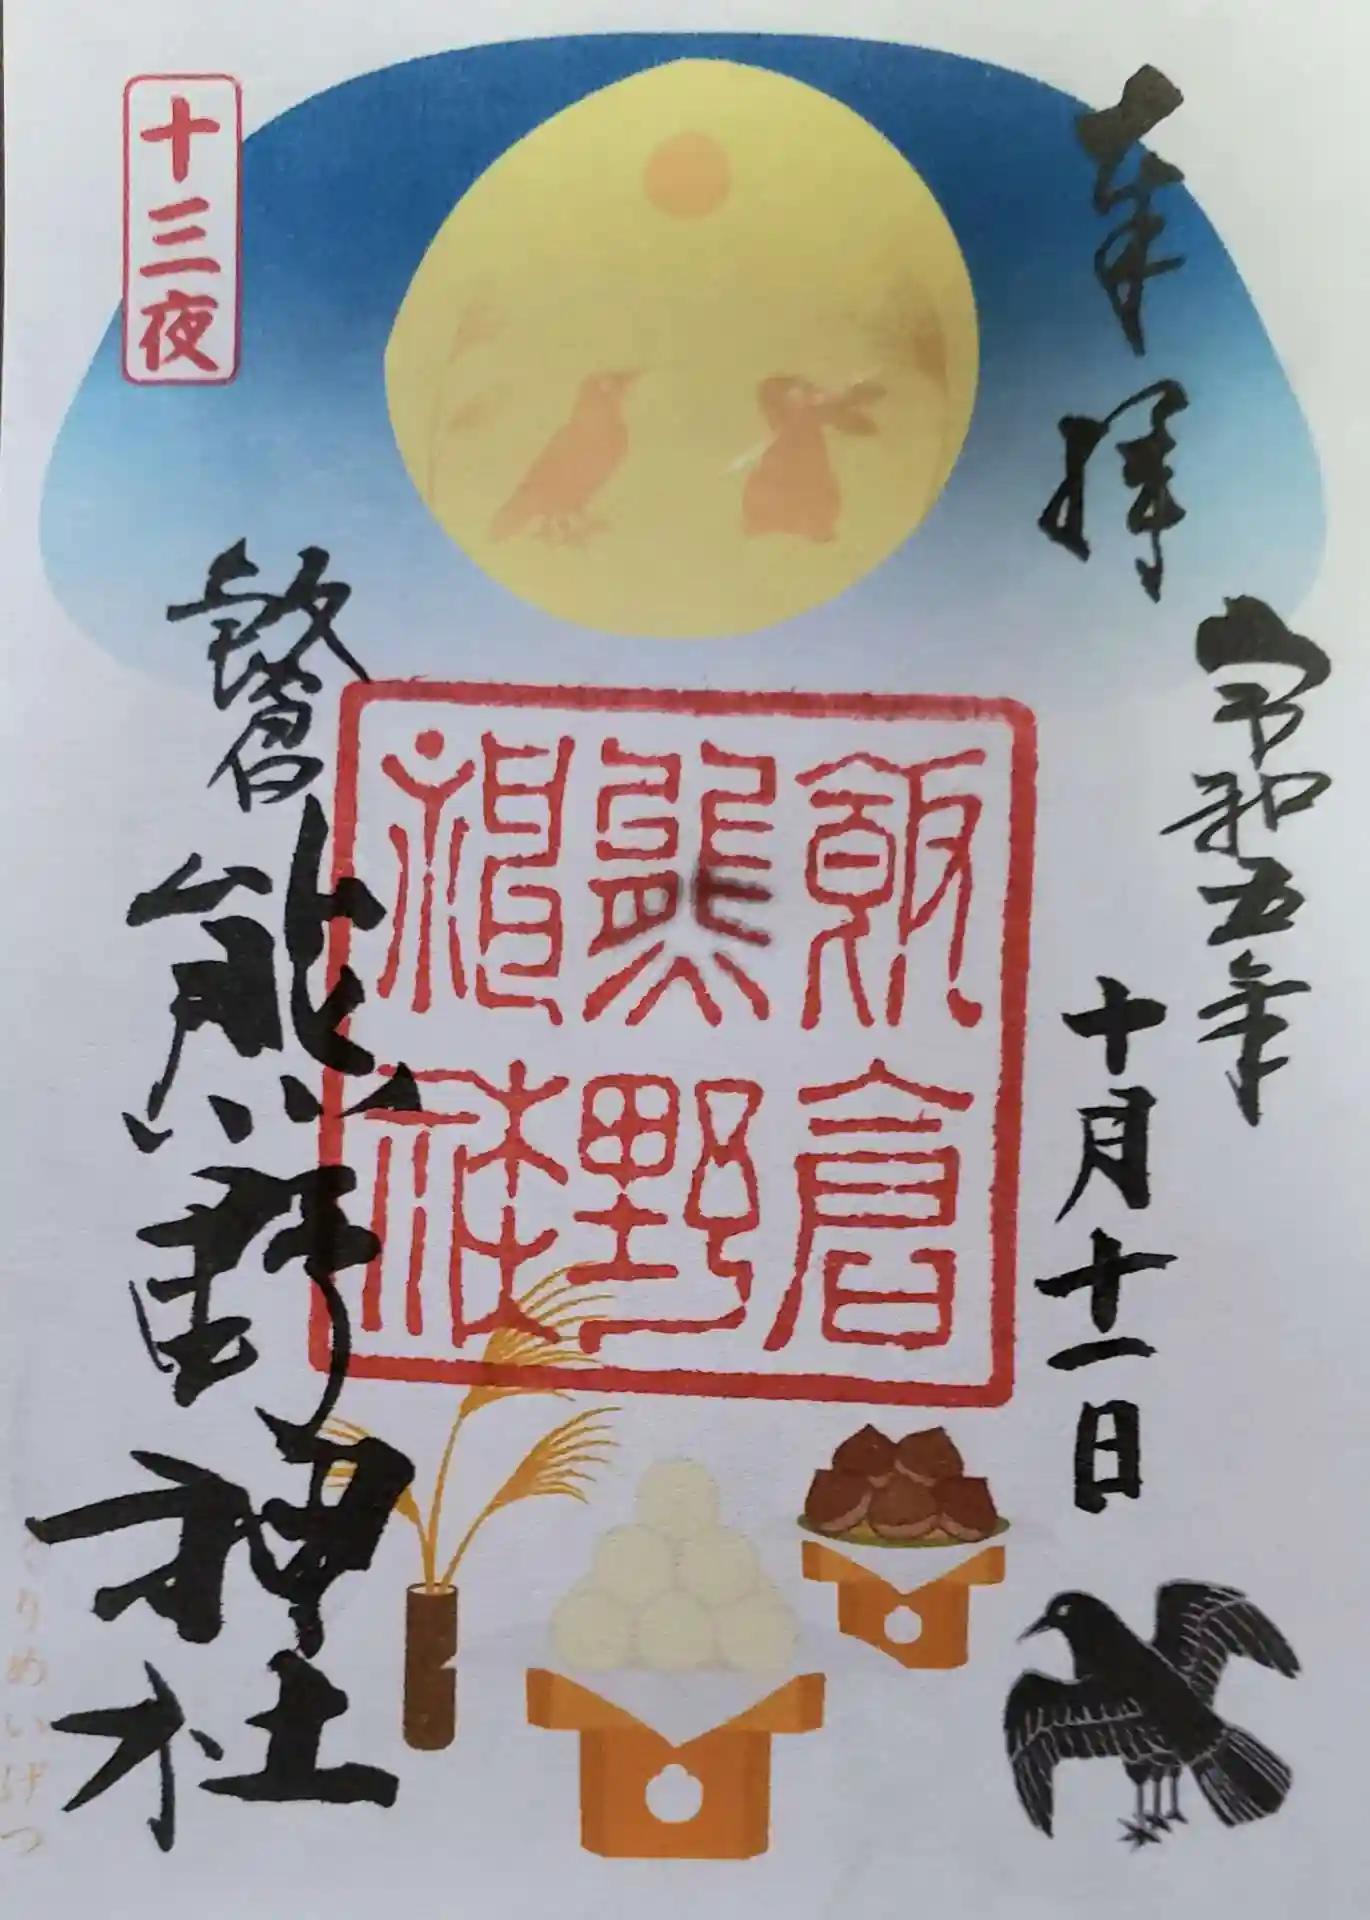 奉拝
令和五年
十月十一日
飯倉
熊野
神社
飯倉
熊野神社
十三夜
くりめいげつ